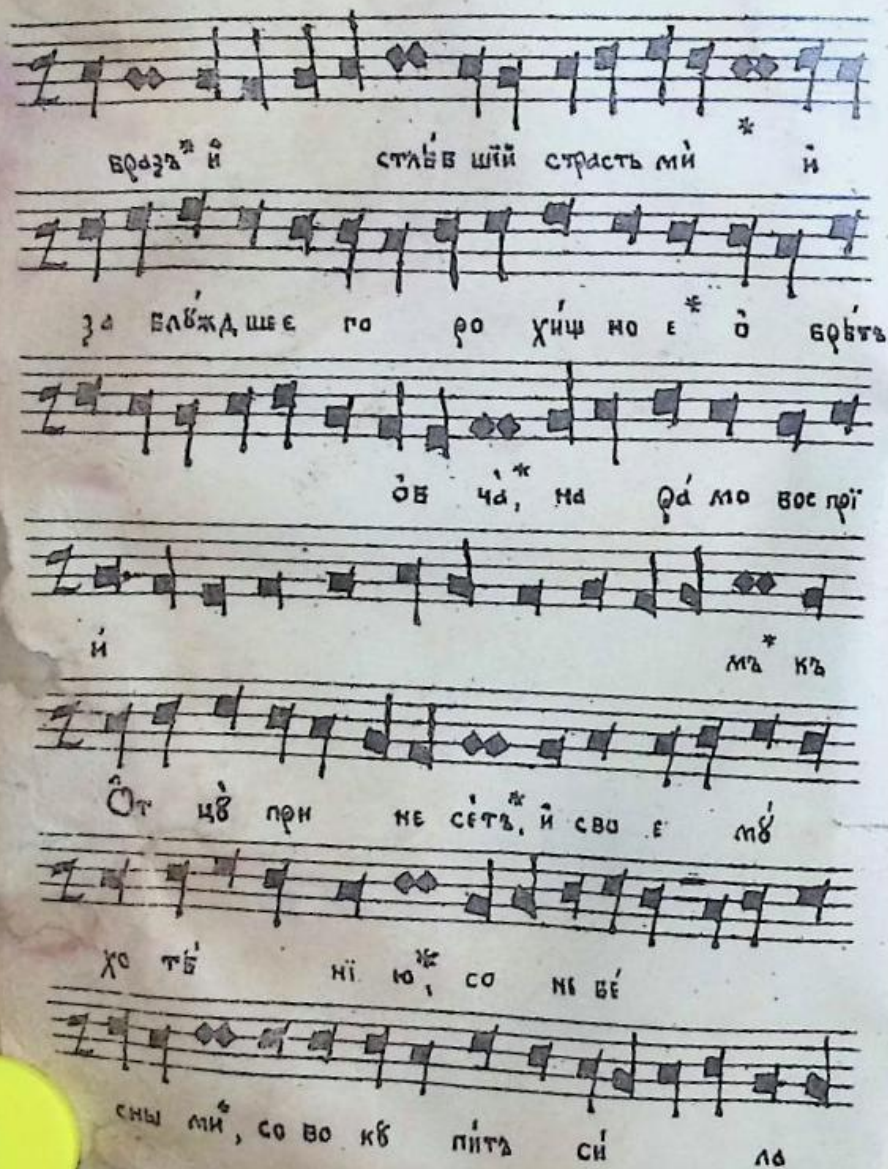 бразъ* и҆ стлѣ́в шїй страсть мѝ * и҆
за блꙋ́жд шее го ро хи́щ но е* ѻ҆ брѣ́тъ
ѻ҆в ча̀,* на ра́мо воспрї
и́ мъ* къ
Ѻ҆т цꙋ̀ при не се́тъ,* и҆ сво е мꙋ́
хо тѣ́ нї ю*, со не бе́
сны ми*, со во кꙋ пи́тъ си́ ла